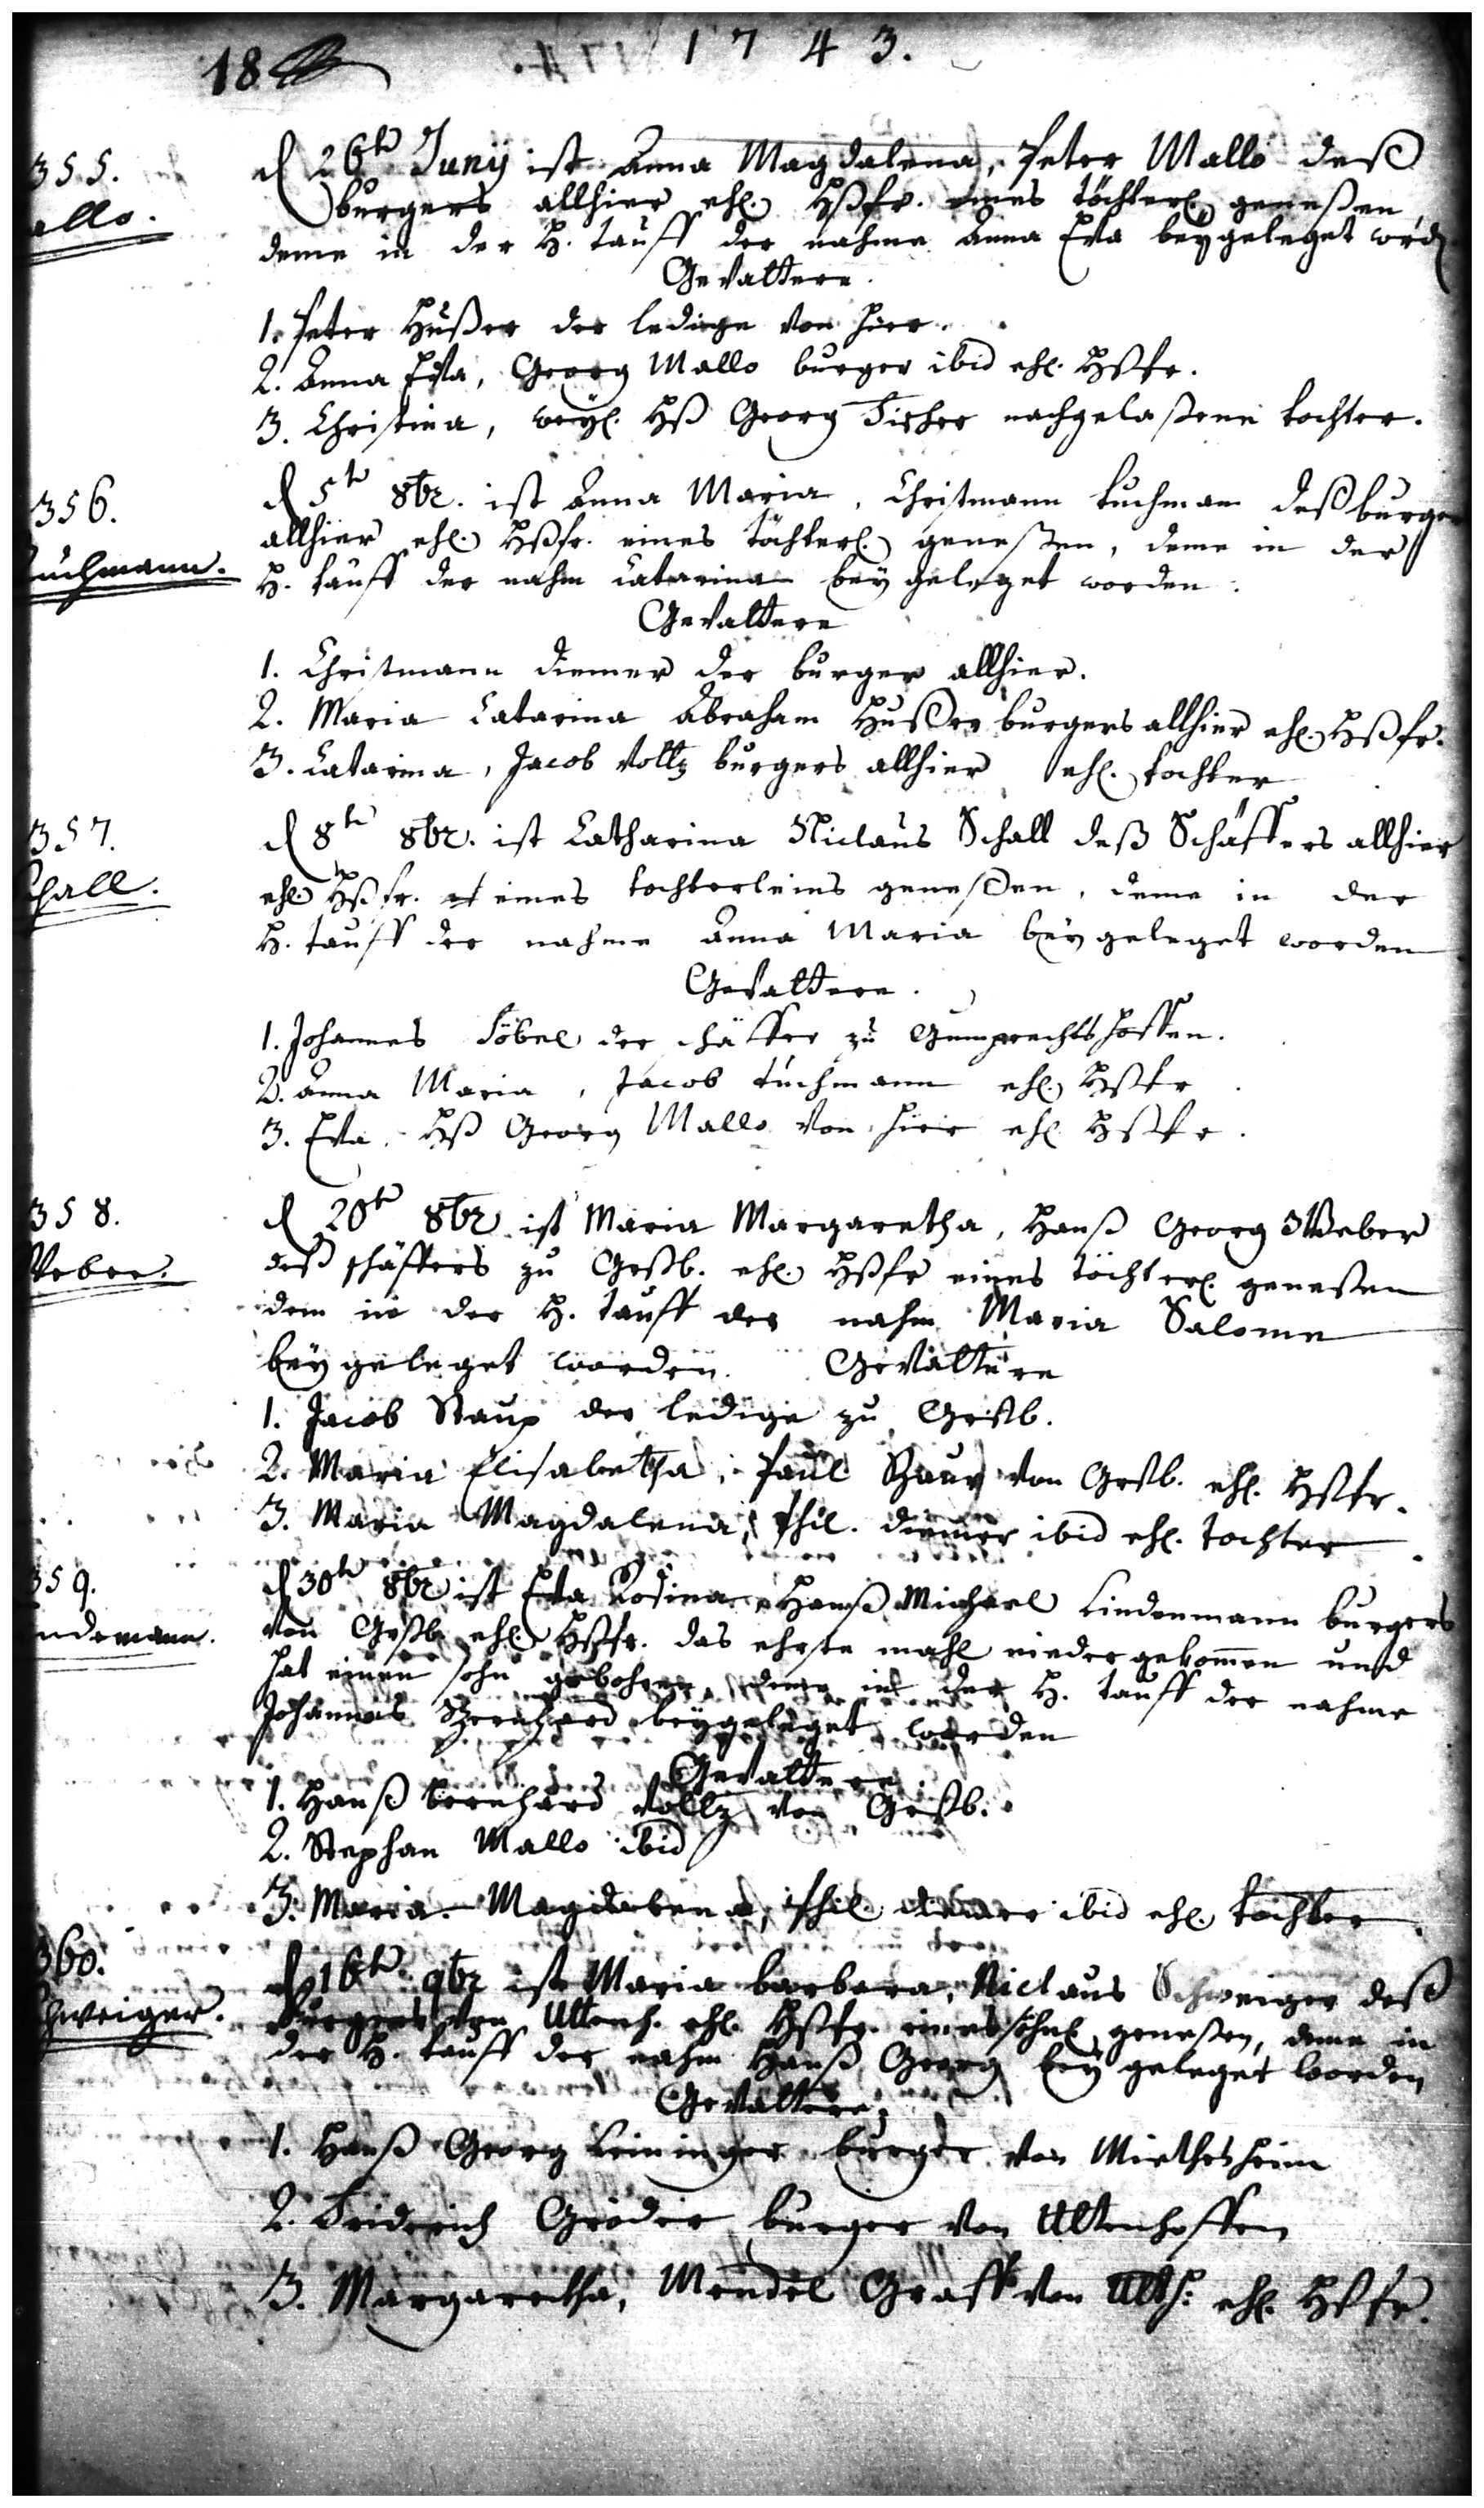 18
1 7 4 3.
355.
allo.
d 26t Junij ist Anna Magdalena, Peter Mallo deß
burgers allhier ehl. Hßfr. eines töchterl. geneßen,
deme in der H. tauff der nahme Anna Eva beygeleget word
Gevattere.
1. Peter Hußer der ledige von hier.
2. Anna Eva, Georg Mallo burger ibid ehl. Hßfr.
3. Christina, weyl. Hß Georg Fischer nachgelaßene tochter.
356.
uchmann.
d 5t 8br. ist Anna Maria, Christmann tuchmann deß burger
allhier ehl. Hßfr. eines töchterl. geneßen, deme in der
H. tauff der nahm Catarina beygeleget worden.
Gevattere
1. Christmann diemer der burger allhier.
2. Maria Catarina Abraham Hußer burgers allhier ehl. Hßfr.
3. Catarina, Jacob Voltz burgers allhier ehl. tochter
357.
chall.
d 8t 8br. ist Catharina Niclaus Schall deß Schäffers allhier
ehl. Hßfr. eines tochterleins geneßen, deme in der
H. tauff der nahme Anna Maria beygeleget worden
Gevattere.
1. Johannes Göbel der schäffer zu Gumprechtshoffen.
2. Anna Maria, Jacob tuchmann ehl. Hßfr.
3. Eva, Hß Georg Mallo von hier ehl. Hßfr.
358.
Weber.
d 20t 8br ist Maria Margaretha, Hanß Georg Weber
deß schäffers zu Grßb. ehl. Hßfr eines töchterl. geneßen
dem in der H. tauff der nahm Maria Salome
beygeleget worden. Gevattere
1. Jacob Staup der ledige zu Grßb.
2. Maria Elisabetha, Paul von Grßb. ehl. Hßfr.
3. Maria Magdalena, Phil. diemer ibid ehl. tochter
359.
ndemann.
d 30t 8br ist Eva Rosina, Hanß Michael Lindenmann burgers
von Grßb. ehl. Hßfr. das ehrste mahl niedergekommen und
hat einen sohn gebohren, deme in der H. tauff der nahme
Johannes Bernhard beygeleget worden
Gevattere
1. Hanß bernhard Voltz von Grßb.
2. Stephan Mallo ibid
3. Maria Magdalena, Phil. diemer ibid ehl. tochter
360.
chweiger.
d 16t 9br ist Maria barbara, Niclaus Schweiger deß
burgers von Uttenh. ehl. Hßfr. eines söhnl. geneßen, deme in
der H. tauff der nahm Hanß Georg beygeleget worden
Gevattere,
1. Hanß Georg Leininger burger von Mietesheim
2. Friderich Gröder burger von Uttenhoffen
3. Margaretha, Wendel Graff von Utth. ehl. Hßfr.